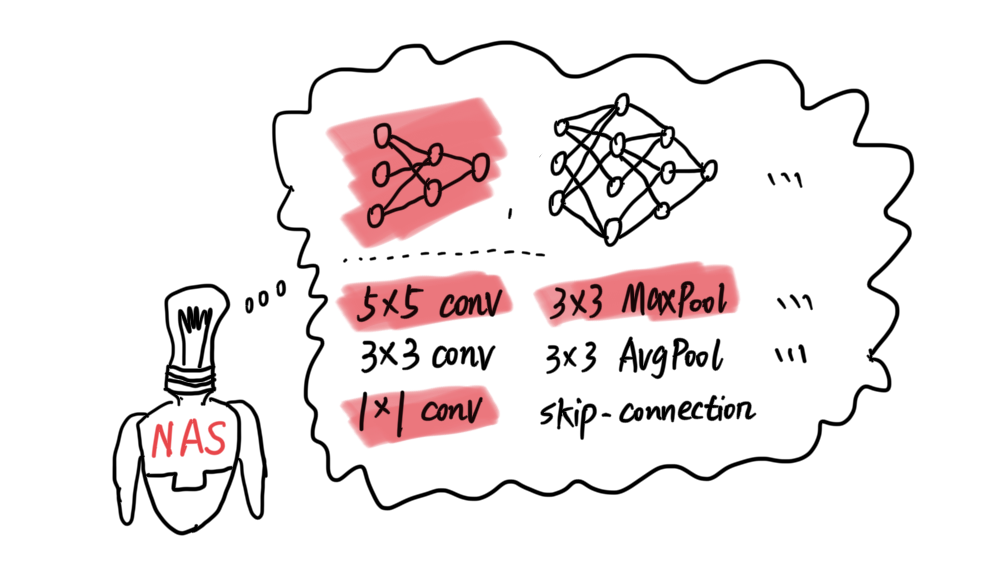 5×5 conv 3×3 MaxPool
3×3 conv 3×3 AvgPool
1×1 conv skip-connection
NAS